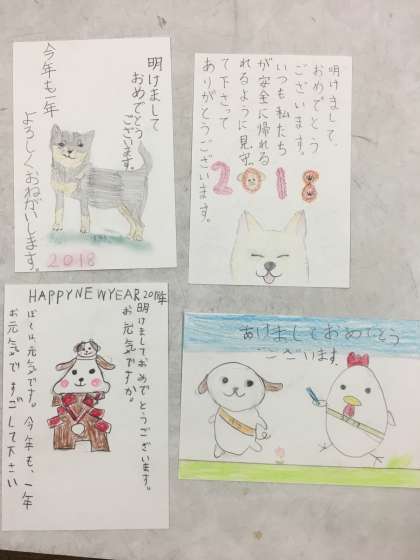 明けまして
おめでとう
ございます。
今年も一年
よろしくおねがいします。
2018
明けまして、
おめでとう
ございます。
いつも私たち
が安全に帰れる
れるように見守っ
て下さって
ありがとうございます。
2018
HAPPY NEW YEAR 2018年
明けましておめでとうございます。
お元気ですか。
ぼくは元気です。今年も、一年
お元気ですごして下さい
あけましておめでとう
ございます